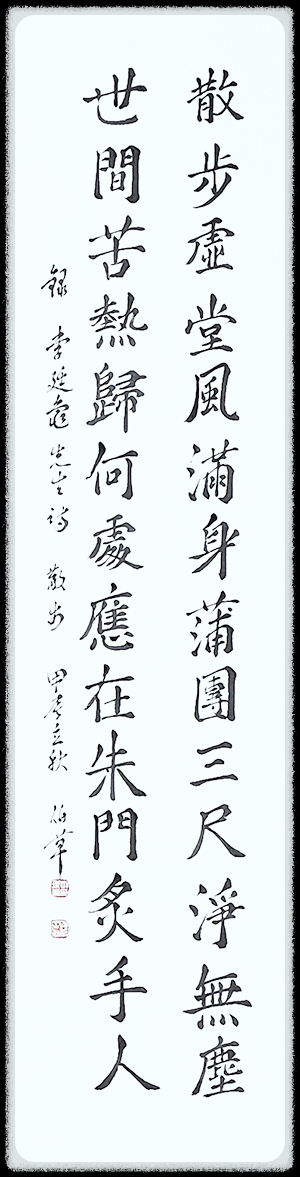 散步虛堂風滿身蒲團三尺淨無塵
世間苦熱歸何處應在朱門炙手人
錄 李廷龜先生詩 散步 甲辰立秋